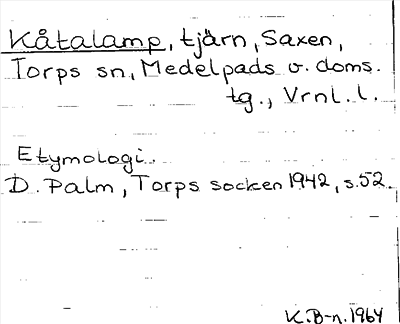 Kåtalamp, tjärn, Saxen,
Torps sn, Medelpads v. doms.
tg., Vrnl. l.
Etymologi.
D. Palm, Torps socken 1942, s.52.
K.B-n. 1964